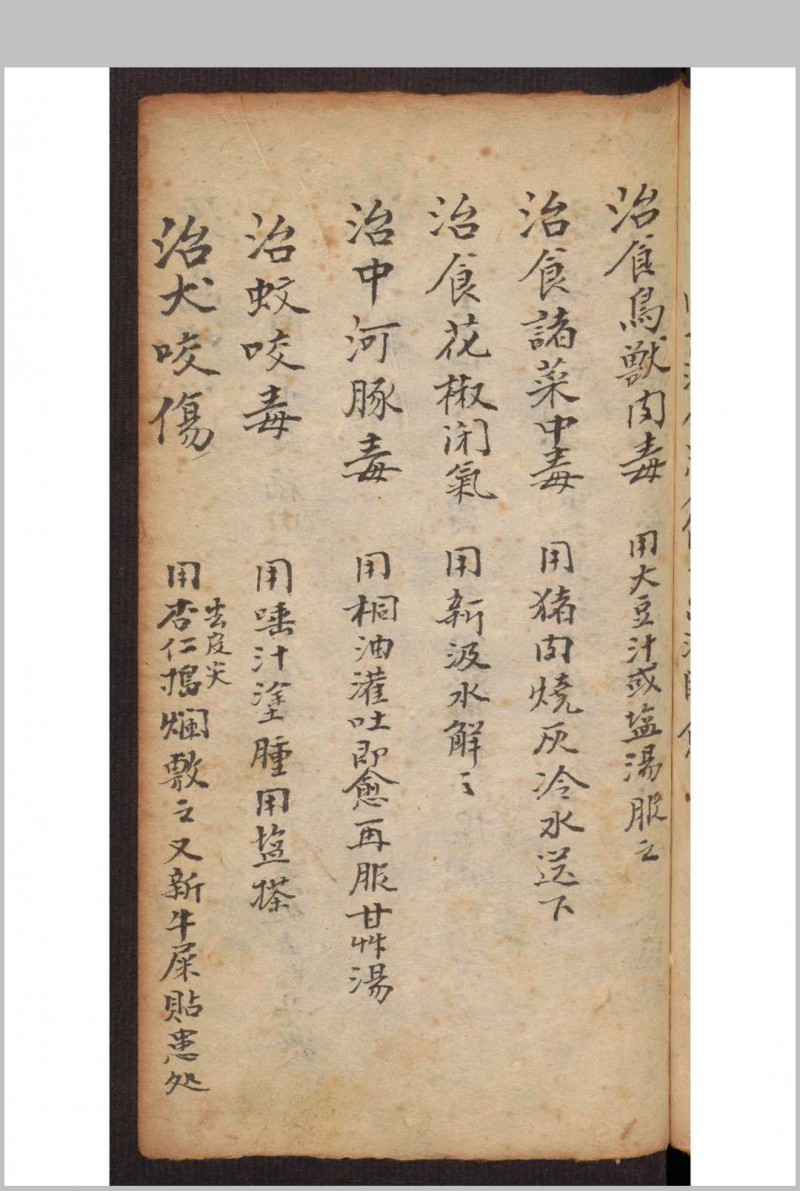 治食鳥獸肉毒 用大豆汁或塩湯服之
治食諸菜中毒 用猪肉燒灰冷水送下
治食花椒闭氣 用新汲水解之
治中河豚毒 用桐油灌吐即愈再服甘艸湯
治蚊咬毒 用唾汁塗腫用塩搽
治犬咬傷 用杏仁去皮尖搗爛敷之又新牛屎貼患处